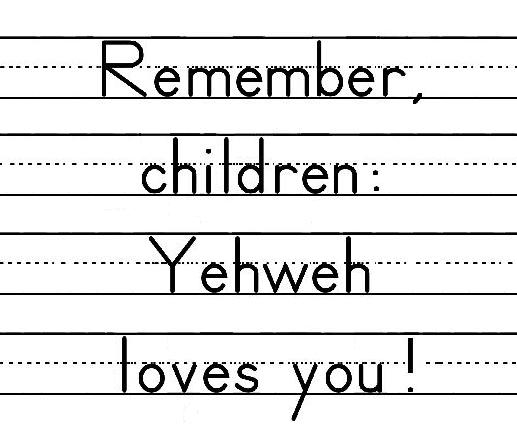 Remember,
children:
Yehweh
loves you!